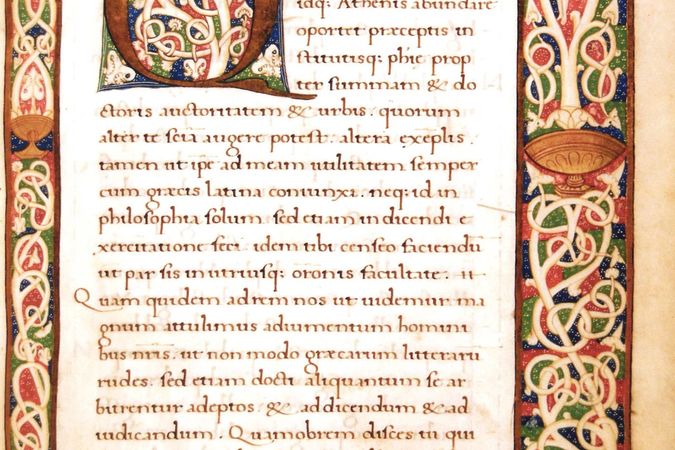 idq; Athenis abundare
oportet præceptis in
stitutisq; phię prop
ter summam & do
ctoris auctoritatem & urbis. quorum
alter te sciā augere potest. altera exēplis.
tamen ut ipē ad meam utilitatem semper
cum græcis latina coniunxi. neq; id in
philosophia solum. sed etiam in dicendi e
xercitatione feci. idem tibi censeo faciendū
ut par sis in utriusq; orōnis facultate.
Quam quidem ad rem nos ut uidemur ma
gnum attulimus adiumentum homini
bus nr̄is. ut non modo græcarum litterarū
rudes. sed etiam docti aliquantum se ar
bitrentur adeptos & ad dicendum & ad
iudicandum. Quamobrem disces tu qui